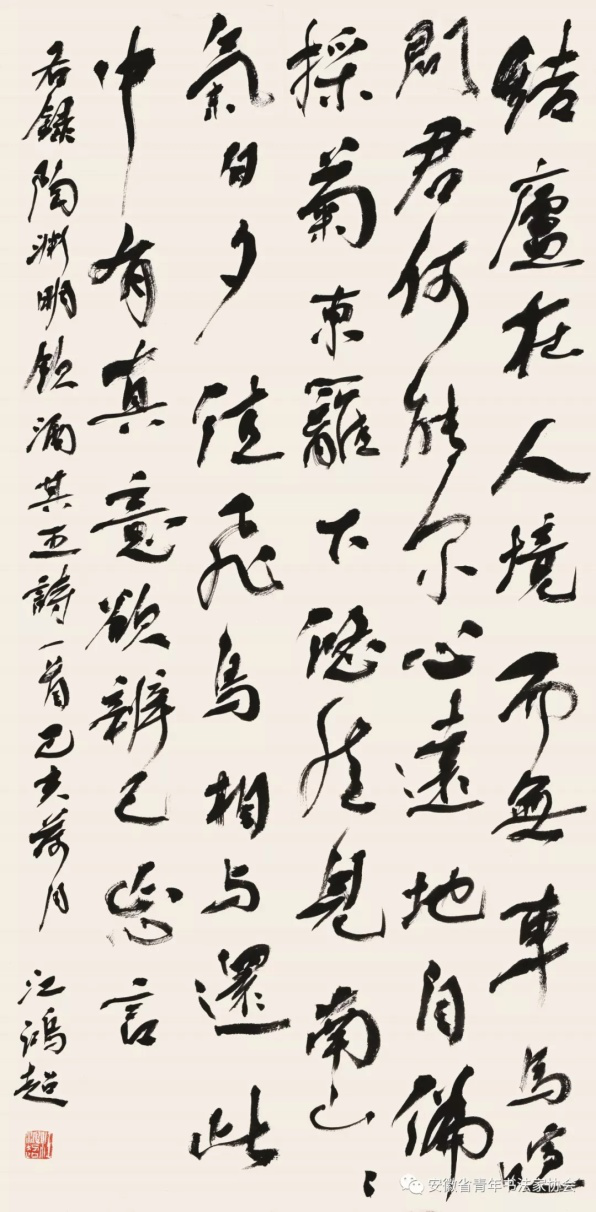 結廬在人境而無車馬喧
問君何能尔心遠地自偏
採菊東籬下悠然見南山〻
氣日夕佳飛鳥相与還此
中有真意欲辨已忘言
右録陶渊明飲酒其五詩一首己亥荷月 江鴻超
安徽省青年书法家协会